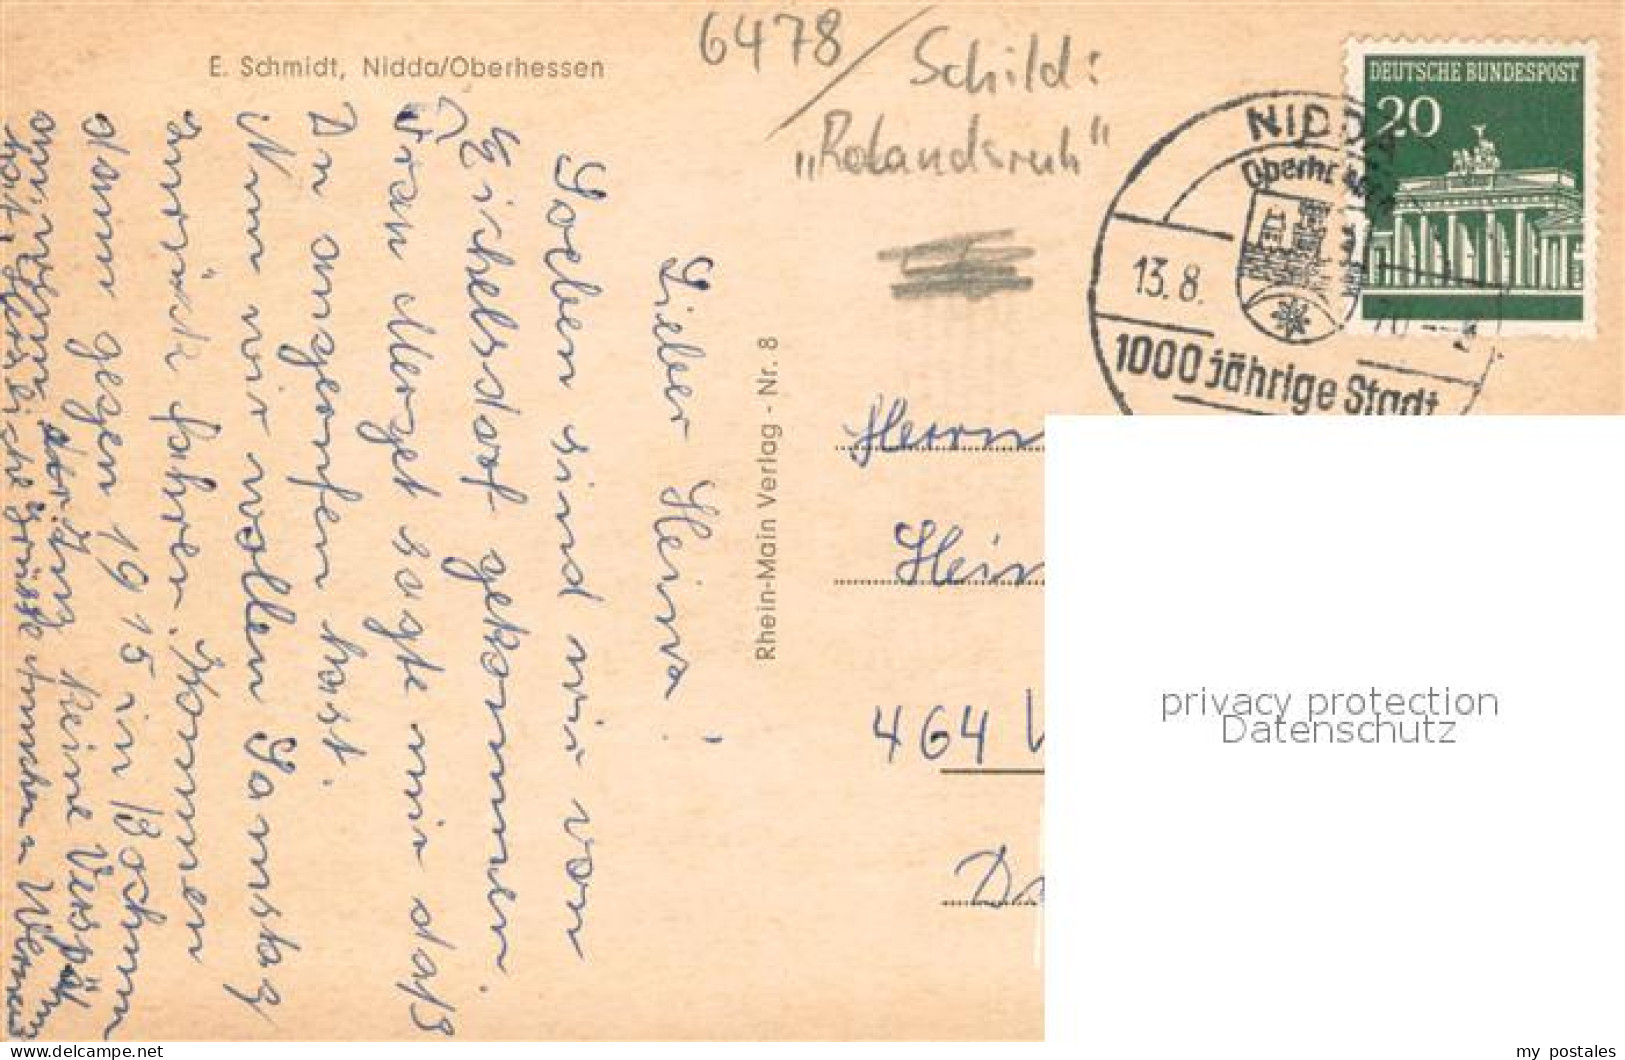 6478 / Schild:
„Rolandsruh"
E. Schmidt, Nidda/Oberhessen
DEUTSCHE BUNDESPOST
20
NIDDA
Oberhessen
13.8.
70
1000 jährige Stadt
Rhein-Main Verlag - Nr. 8
Lieber Heinz!
Soeben sind wir von
Eichelsdorf gekommen.
Frau Merget sagte mir daß
Du angerufen hast.
Nun wir wollen Samstag
zurück fahren. Kommen
dann gegen 19 15 in Bochum
an, wenn der Zug keine Verspätung
hat. Herzliche Grüsse
Herrn
Hein
464 W
privacy protection
Datenschutz
my postales
https://www.delcampe.net